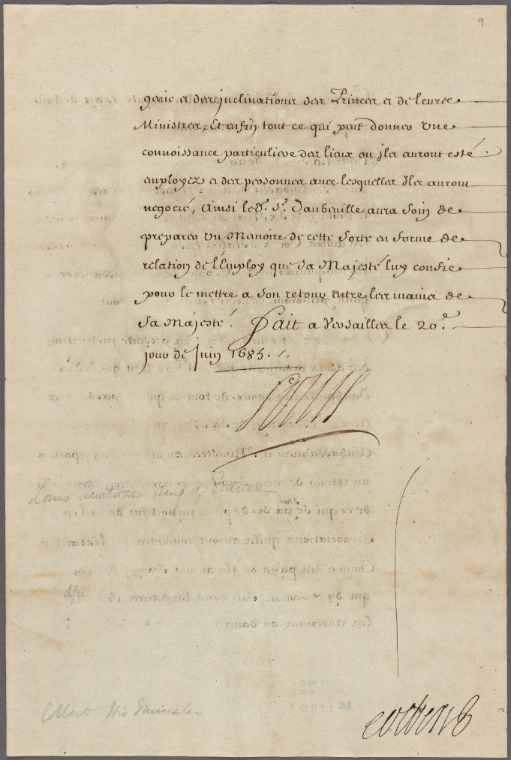 9
genie et des jnclinations des Princes et de leurs
Ministres, Et enfin tout ce qui peut donner vne
connoissance particuliere des lieux ou jls auront esté
employez et des personnes auec lesquelles jls auront
negocié, Ainsi led. Sr. Daubeuille aura soin de
preparer vn Memoire de cette sorte en forme de
relation de l'Employ que Sa Majesté luy confie
pour le mettre a son retour entre les mains de
Sa Majesté. Fait a Versailles le 20e.
jour de juin 1685.
Louis
Louis Quatorze King of France
Colbert his Minister
Colbert